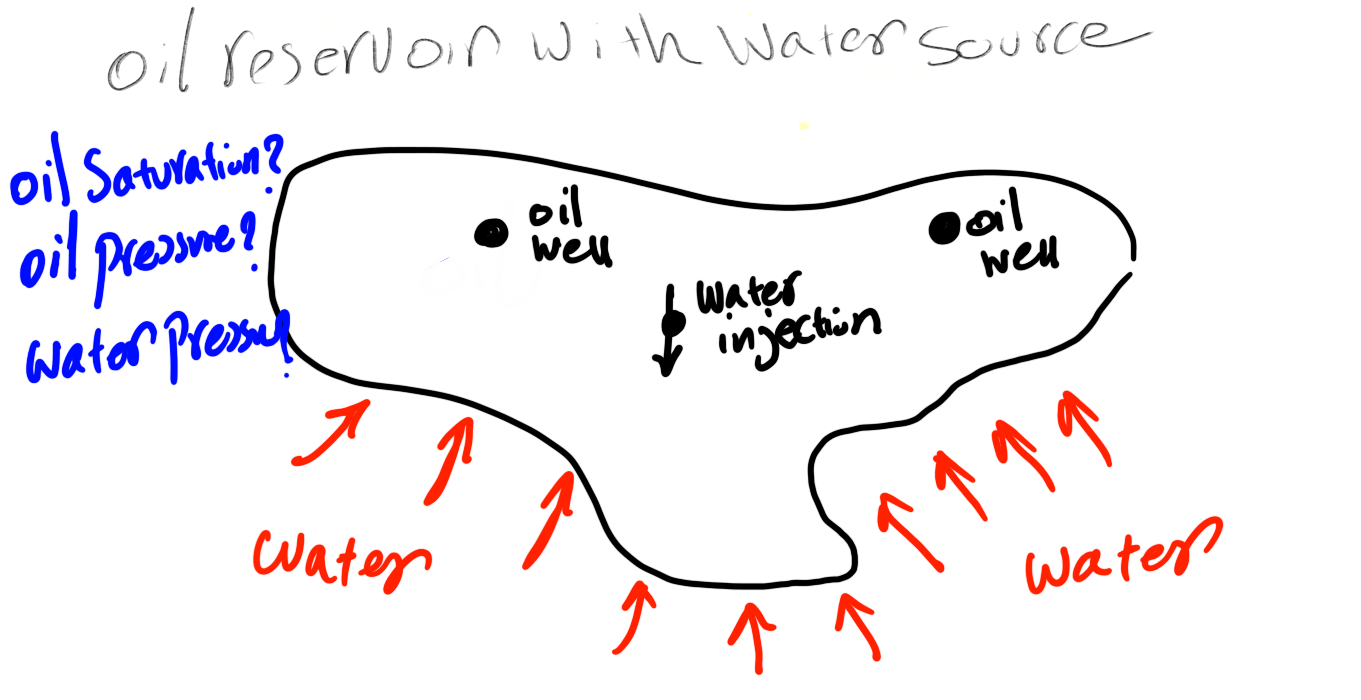 oil reservoir with water source
oil Saturation?
oil pressure?
water pressure?
oil
well
oil
well
water
injection
water
water